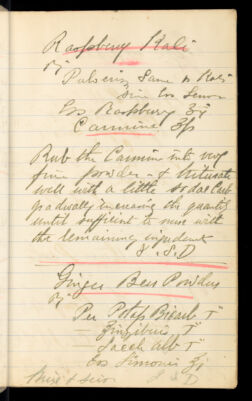 Raspberry Kali
Pulveris Same as Kali
Ess Raspberry ʒj
Carmine ʒſs
Rub the Carmin into very
fine powder & triturate
well with a little sodae Carb
gradually increasing the quantity
until sufficient to mix with
the remaining ingredients
S. S. D
Ginger Beer Powders
Per Potass Bicarb
Zingiberis
Sacch Alb
Ess Limonis ʒj